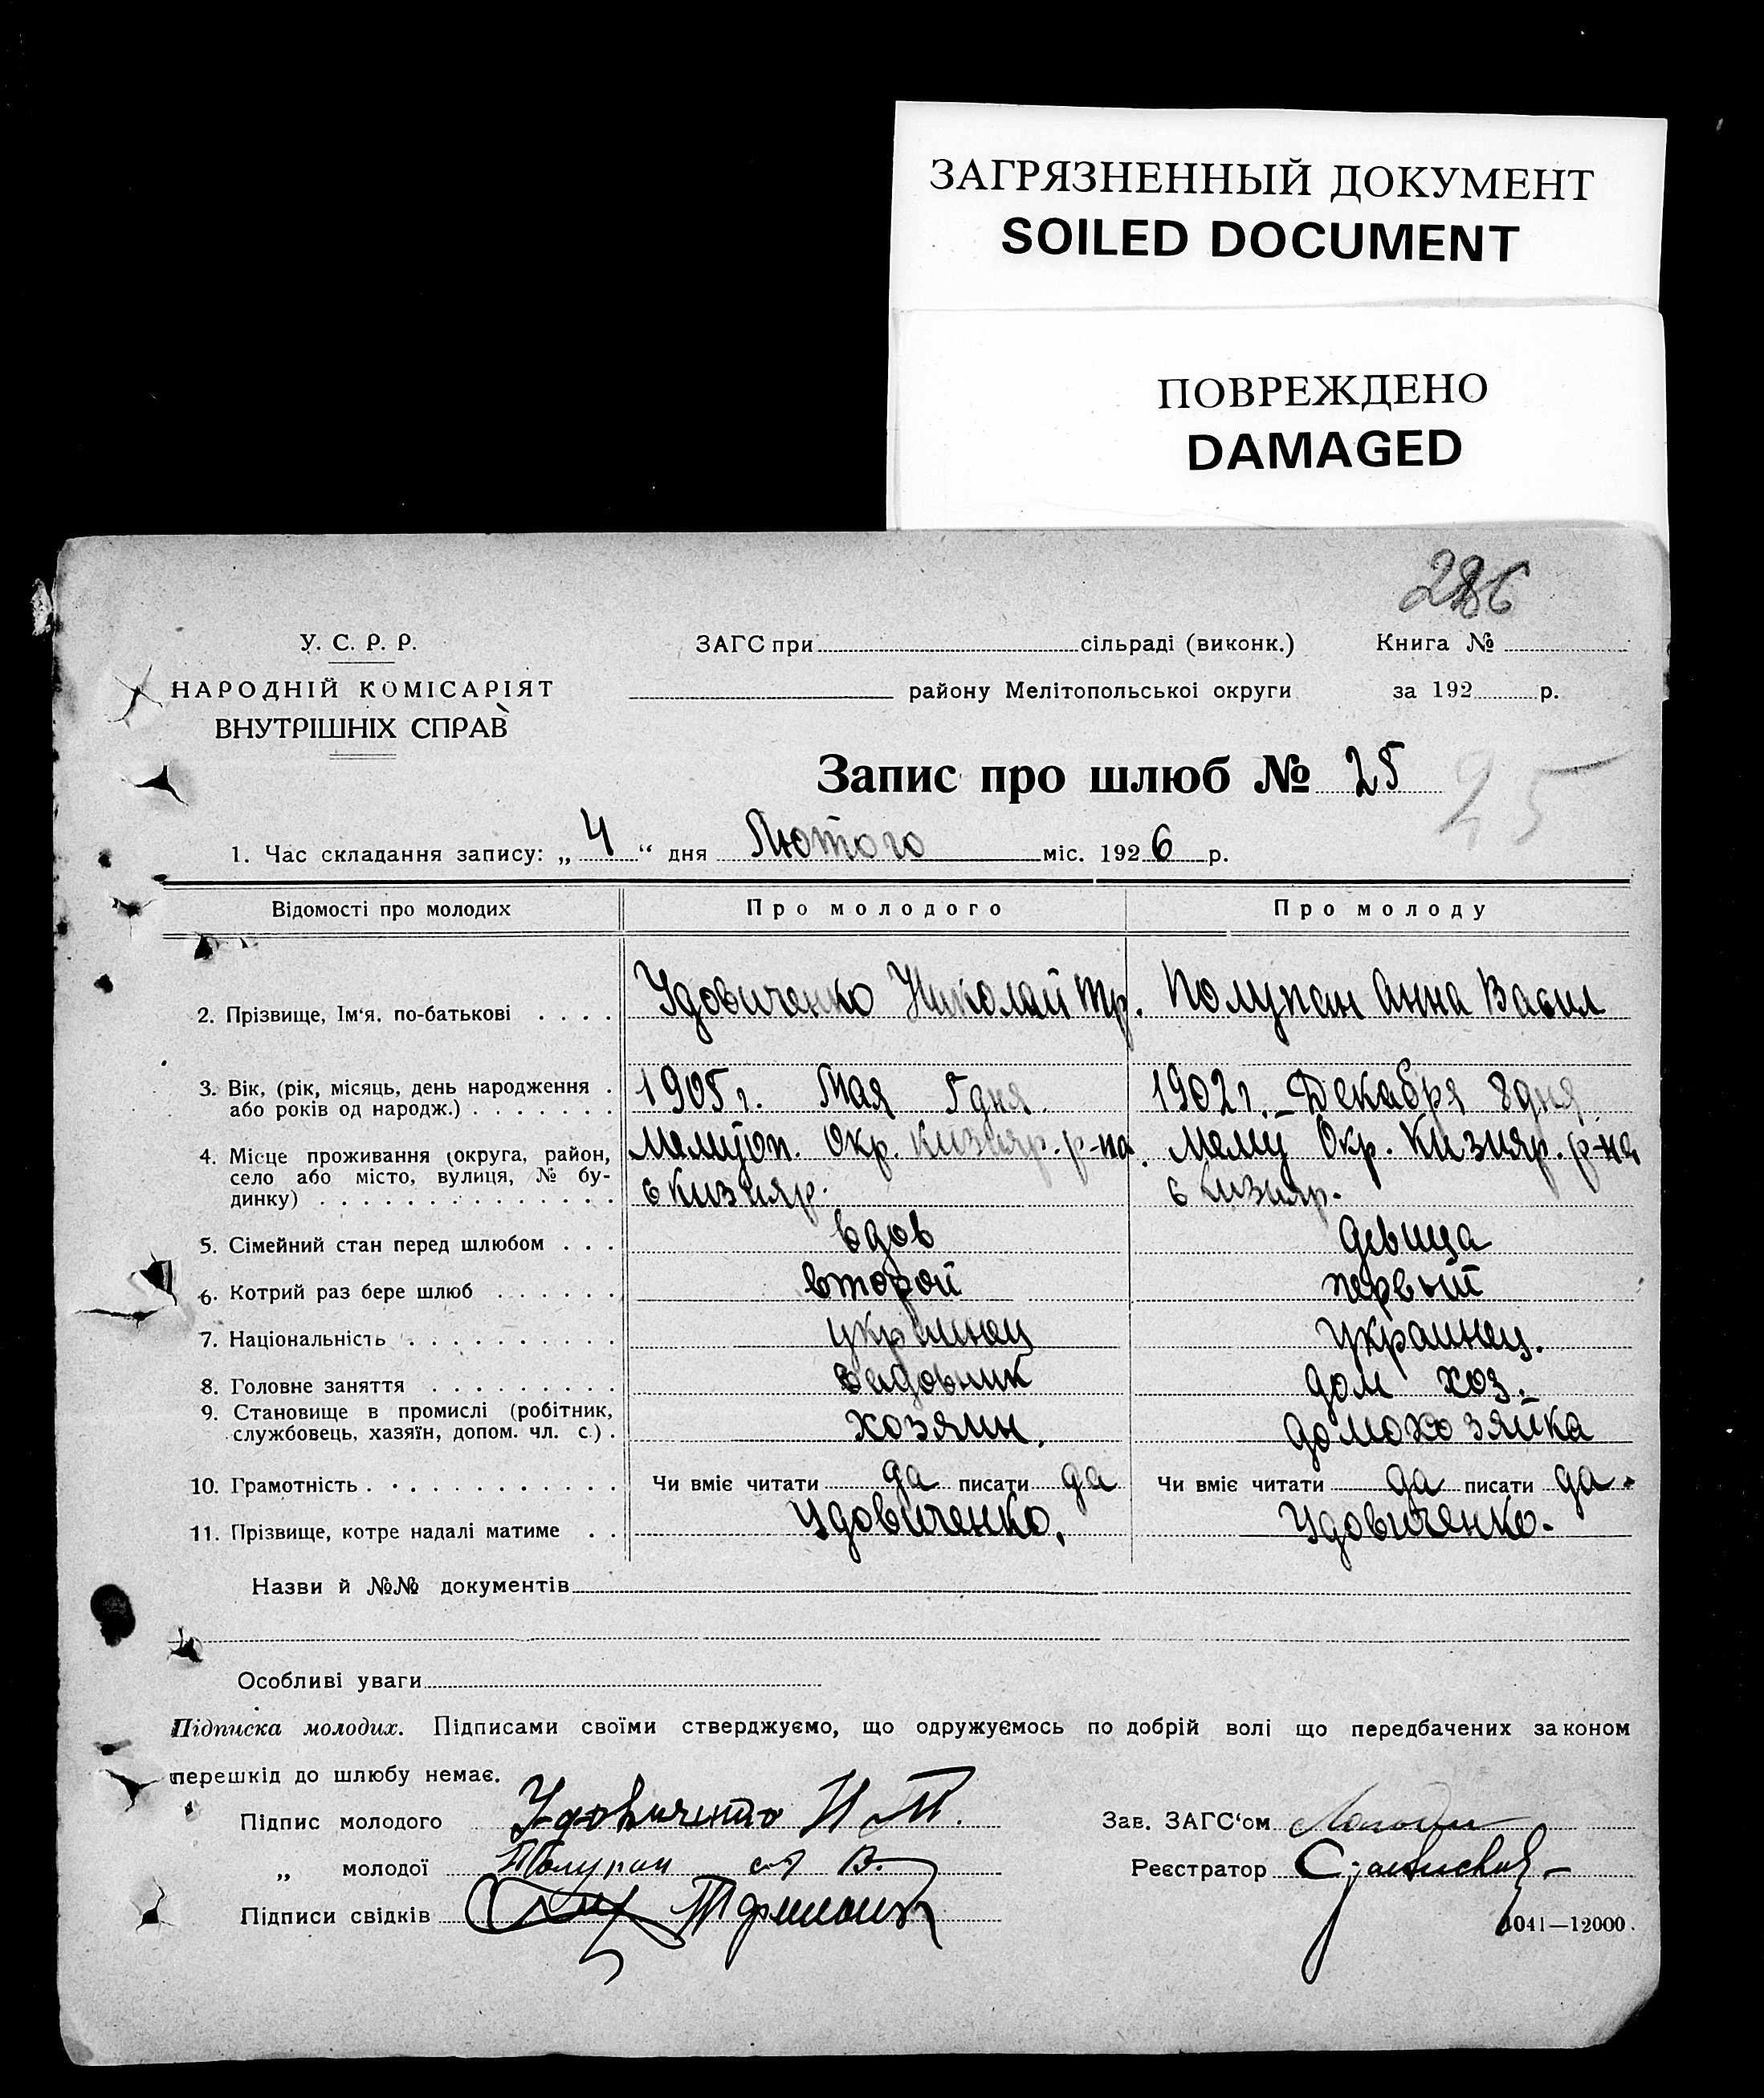 ЗАГРЯЗНЕННЫЙ ДОКУМЕНТ
SOILED DOCUMENT
ПОВРЕЖДЕНО
DAMAGED
286
У. С. Р. Р.
НАРОДНІЙ КОМІСАРІЯТ
ВНУТРІШНІХ СПРАВ
ЗАГС при сільраді (виконк.) Книга №
району Мелітопольської округи за 192 р.
Запис про шлюб № 25
25
1. Час складання запису: „ 4 “ дня Лютого міс. 1926 р.
Відомості про молодих Про молодого Про молоду
2. Прізвище, Ім‘я, по-батькові . . . . Удовиченко Николай Тр. Полупан Анна Васил
3. Вік, (рік, місяць, день народження . 1905 г. Мая 5 дня 1902 г. Декабря 8 дня
або років од народж.) . . . . . . .
4. Місце проживання (округа, район, Мелитоп. Окр. Кизияр. р-на. Мелит Окр. Кизияр. р-на
село або місто, вулиця, № бу- с Кизияр. с Кизияр.
динку) . . . . . . . . . . . . . .
5. Сімейний стан перед шлюбом . . . вдов девица
6. Котрий раз бере шлюб . . . . . . второй первый
7. Національність . . . . . . . . . . украинец украинец.
8. Головне заняття . . . . . . . . . садовник дом хоз.
9. Становище в промислі (робітник, хозяин. домохозяйка
службовець, хазяїн, допом. чл. с.) .
10. Грамотність . . . . . . . . . . . Чи вміє читати да писати да Чи вміє читати да писати да.
11. Прізвище, котре надалі матиме . . Удовиченко. Удовиченко.
Назви й №№ документів
Особливі уваги
Підписка молодих. Підписами своїми стверджуємо, що одружуємось по добрій волі що передбачених законом
перешкід до шлюбу немає.
Підпис молодого Удовиченко Н Т. Зав. ЗАГС‘ом
„ молодої Полупан В. Реєстратор
Підписи свідків
1041—12000.